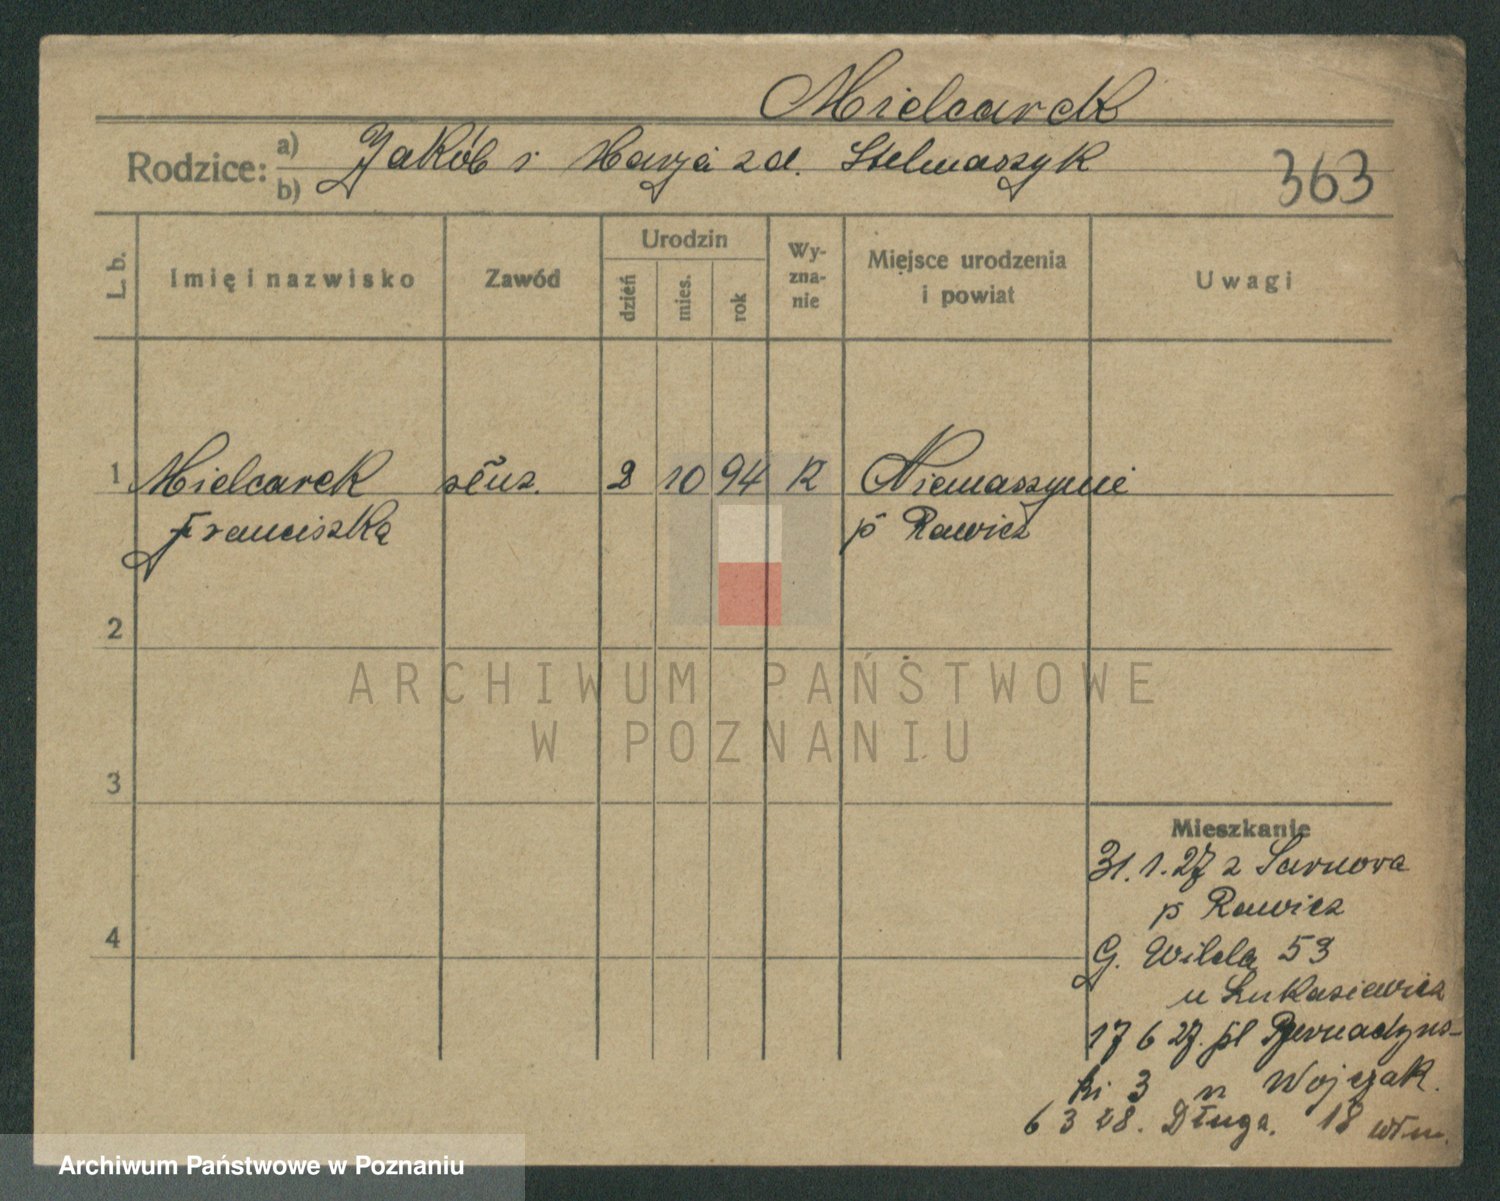 Mielcarek
Rodzice: a) Jakób i Marja z d. Stelmaszyk
b)
363
L. b.
Imię i nazwisko
Zawód
Urodzin
dzień
mies.
rok
Wy-
zna-
nie
Miejsce urodzenia
i powiat
Uwagi
1 Mielcarek służ. 2 10 94 K
Franciszka p Rawicz
2
3
4
Mieszkanie
31. 1. 27 z Sarnowa
p Rawicz
G. Wilda 53
u Łukasiewicz
17 6 27. pl Bernadyns-
ki 3 u Wojczak.
6 3 28. Długa. 18
ARCHIWUM PAŃSTWOWE
W POZNANIU
Archiwum Państwowe w Poznaniu